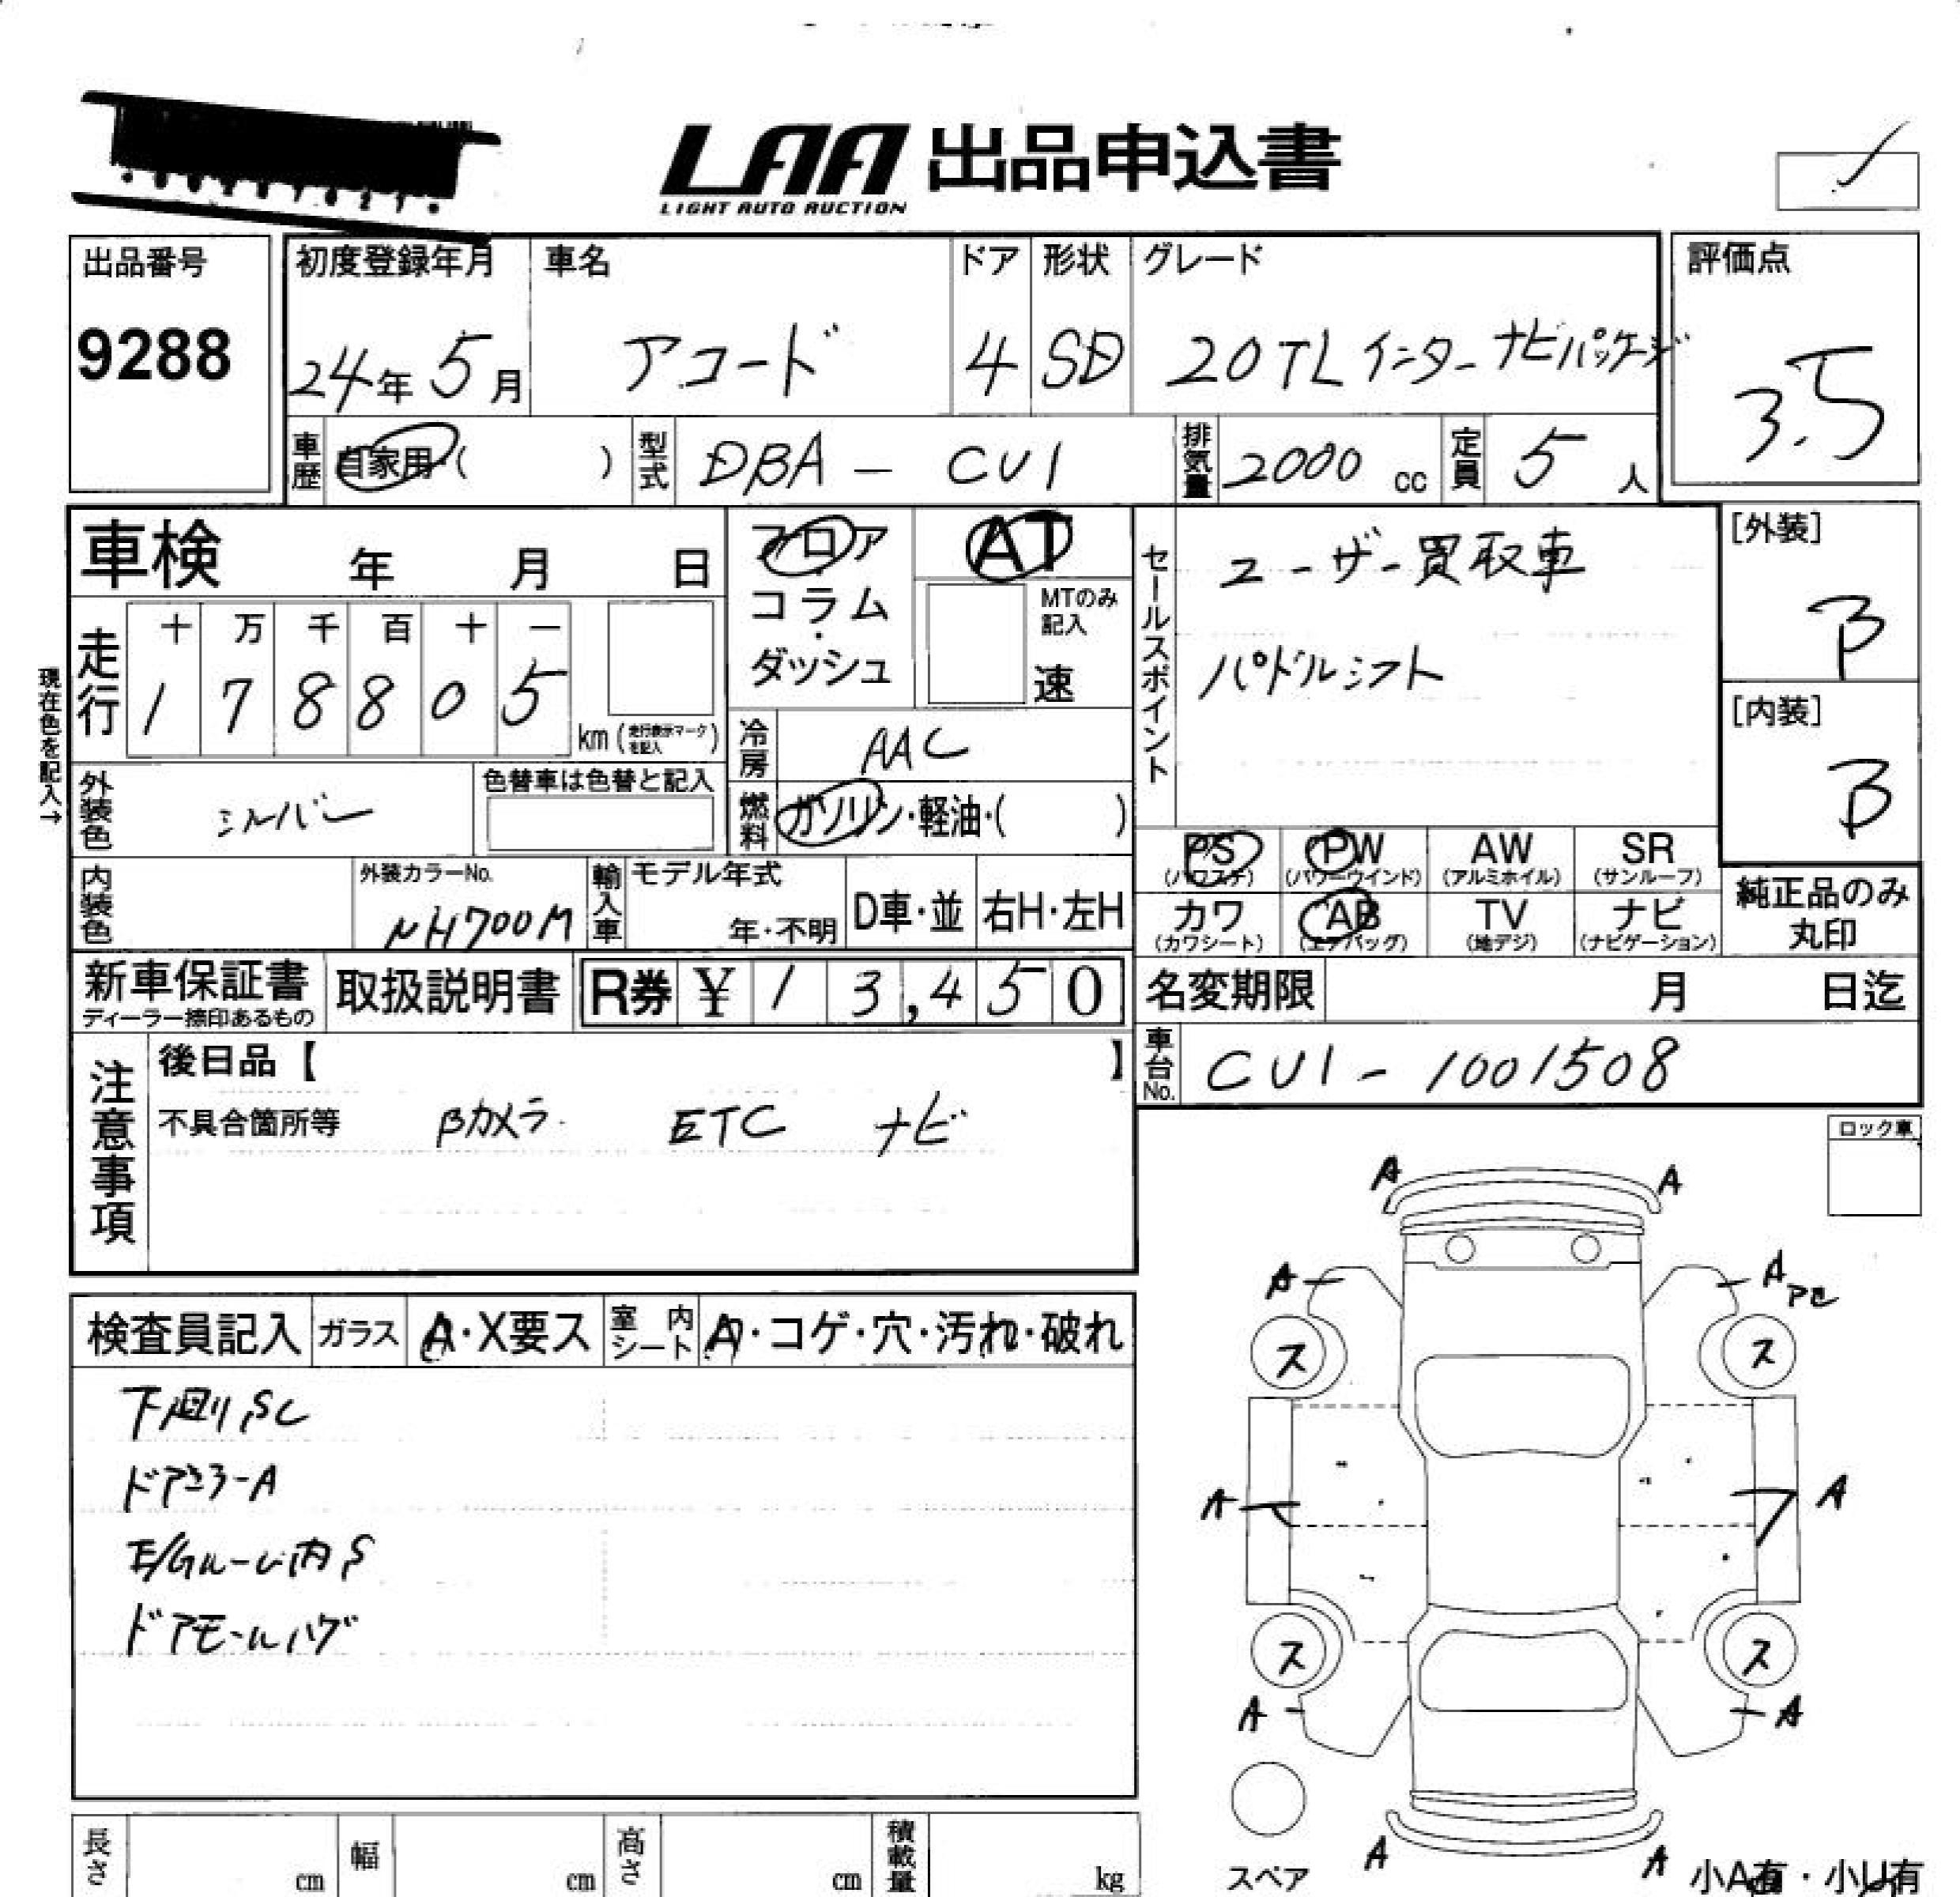 LAA 出品申込書
LIGHT AUTO AUCTION
出品番号
9288
初度登録年月
24年 5月
車名
アコード
ドア
4
形状
SD
グレード
20TL インターナビパッケージ
評価点
3.5
車歴
自家用・( )
型式
DBA - CU1
排気量
2000 cc
定員
5 人
車検 年 月 日
フロア
コラム
・
ダッシュ
AT
MTのみ
記入
速
セールスポイント
ユーザー買取車
パドルシフト
[外装]
B
[内装]
B
現在色を記入→
走行
十 万 千 百 十 一
1 7 8 8 0 5
km (走行表示マークを記入)
冷房
AAC
外装色
シルバー
色替車は色替と記入
燃料
ガソリン・軽油・( )
PS PW AW SR
(パワステ) (パワーウインド) (アルミホイル) (サンルーフ)
カワ AB TV ナビ
(カワシート) (エアバッグ) (地デジ) (ナビゲーション)
純正品のみ
丸印
内装色
外装カラーNo.
NH700M
輸入車
モデル年式
年・不明
D車・並
右H・左H
新車保証書
ディーラー捺印あるもの
取扱説明書
R券 ¥ 1 3,4 5 0
名変期限 月 日迄
車台No.
CU1 - 1001508
注意事項
後日品【 】
不具合箇所等 Bカメラ ETC ナビ
ロック車
検査員記入
ガラス
A・X要ス
室内
シート
A・コゲ・穴・汚れ・破れ
下廻りSC
ドアミラーA
E/Gルーム内S
ドアモールハゲ
A A
A A
アセ
ス ス
A A
ス ス
A A
A A
スペア
小A有・小U有
長さ cm
幅 cm
高さ cm
積載量 kg